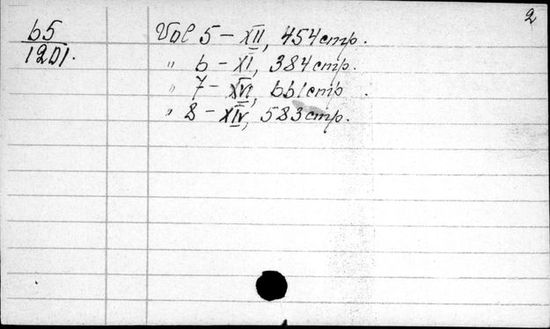 2
65
1201.
Vol 5 – XII, 454 стр.
" 6 – XI, 384 стр.
" 7 – XVI, 661 стр.
" 8 – XIV, 583 стр.